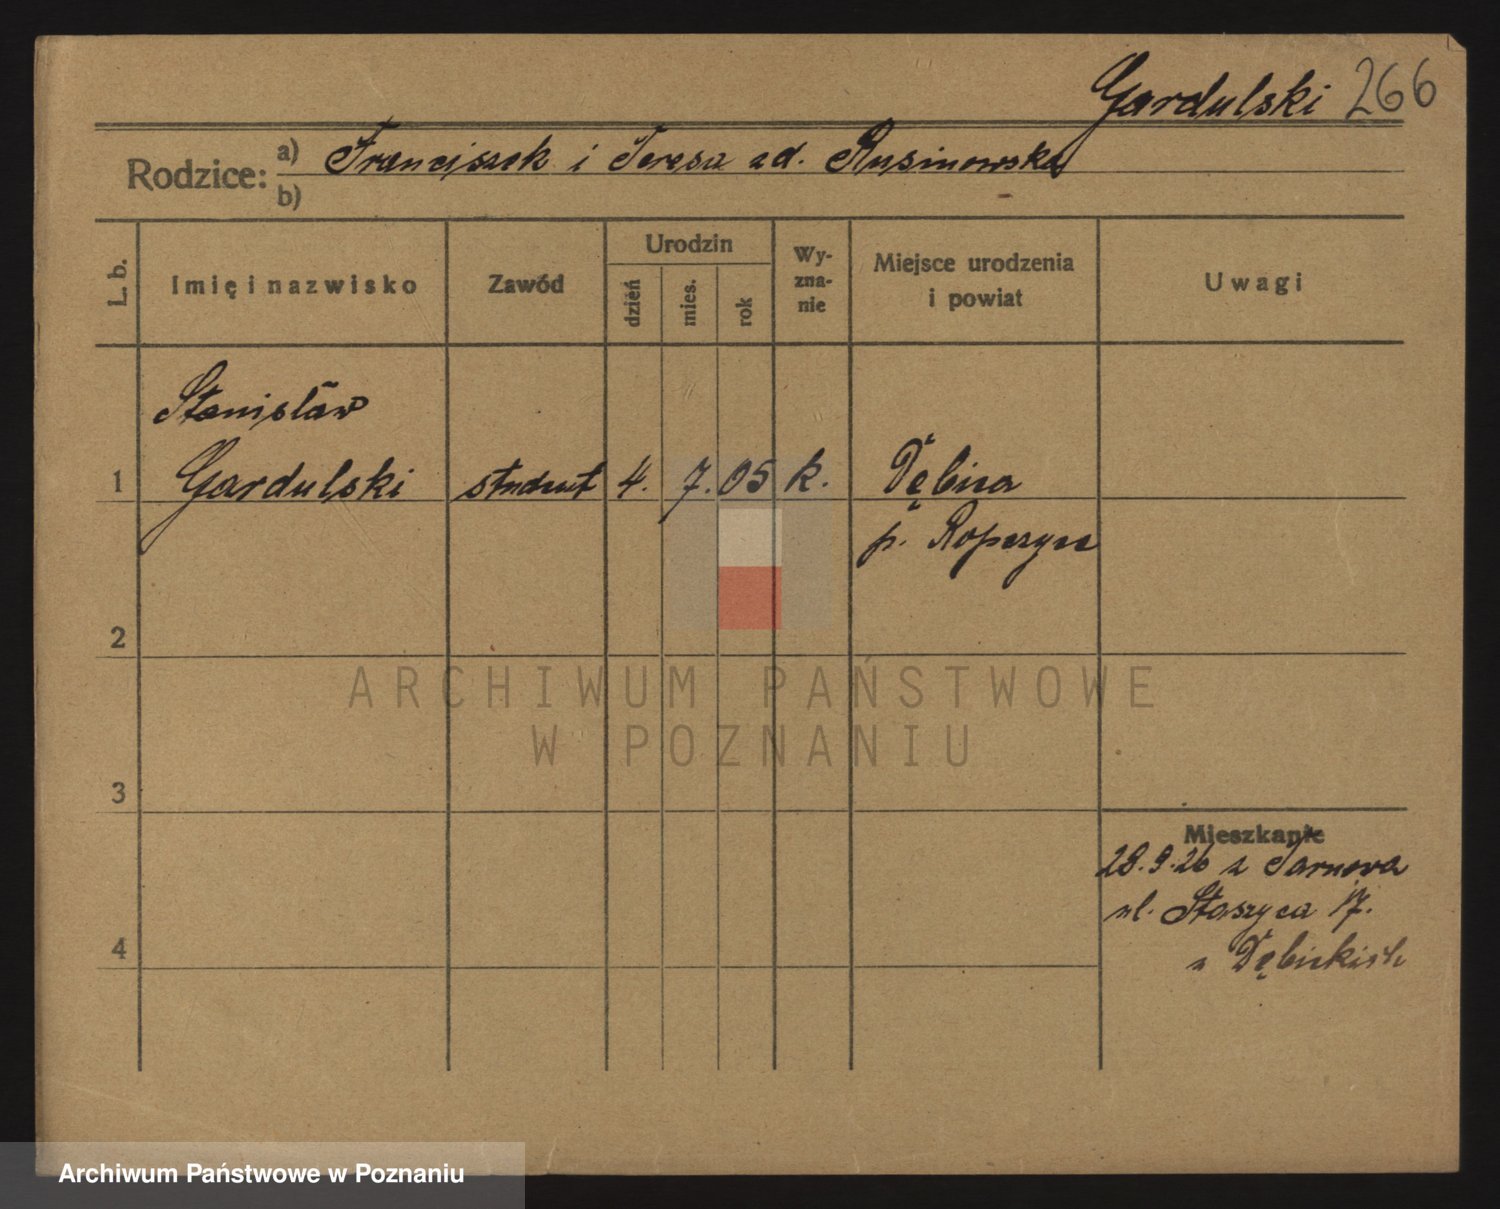 Gardulski 266
Rodzice: a) Franciszek i Teresa zd. Rusinowska
b)
L. b.
Imię i nazwisko
Zawód
Urodzin
dzień
mies.
rok
Wy-
zna-
nie
Miejsce urodzenia
i powiat
Uwagi
Stanisław
1 Gardulski student 4. 7. 05 k. Dębica
p. Ropczyce
2
ARCHIWUM PAŃSTWOWE
W POZNANIU
3
Mieszkanie
28.9.26 z Tarnowa
ul. Staszyca 17.
4
u Dębickich
Archiwum Państwowe w Poznaniu